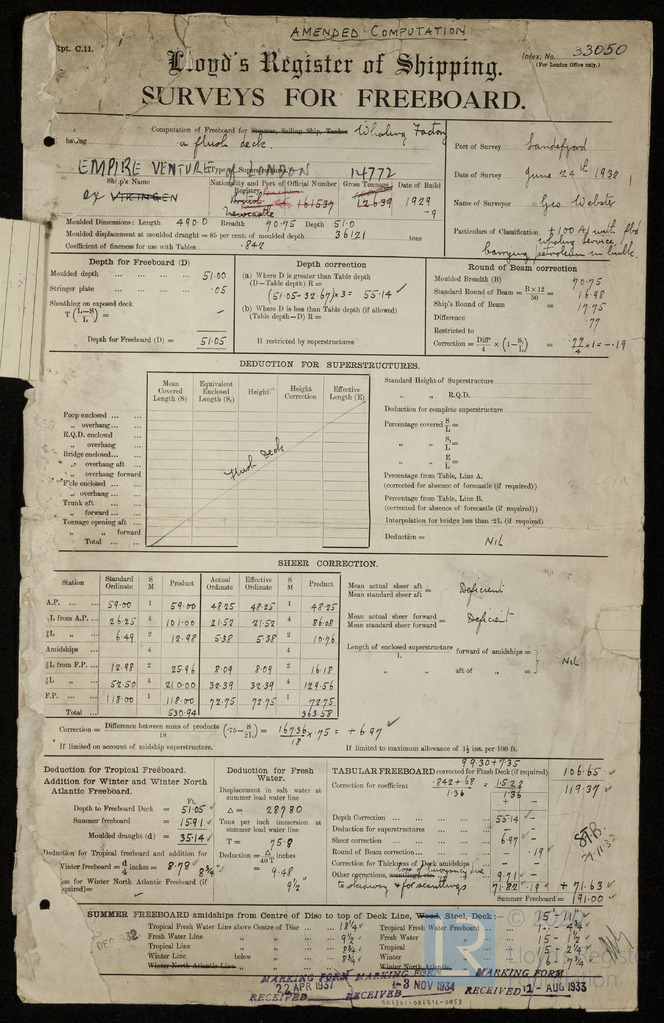 AMENDED COMPUTATION
Rpt. C.11.
Index. No. 33050
(For London Office only.)
Lloyd's Register of Shipping.
SURVEYS FOR FREEBOARD.
Computation of Freeboard for Steamer, Sailing Ship, Tanker Whaling Factory
having a flush deck.
Port of Survey Sandefjord
Date of Survey June 24th 1930
Name of Surveyor Geo. Webster
Particulars of Classification +100 A1 with fbd
whaling service,
carrying petroleum in bulk.
EMPIRE VENTURE of LONDON 14772
Ship's Name
Nationality and Port of Registry
Official Number
Gross Tonnage
Date of Build
ex VIKINGEN
British
Newcastle
161537
12639
1929
-9
Moulded Dimensions: Length 490.0 Breadth 70.75 Depth 51.0
Moulded displacement at moulded draught = 85 per cent. of moulded depth 36121 tons
Coefficient of fineness for use with Tables .842
Depth for Freeboard (D)
Moulded depth ... 51.00
Stringer plate ... .05
Sheathing on exposed deck
T (L-S/L) = –
Depth for Freeboard (D) = 51.05
Depth correction
(a) Where D is greater than Table depth
(D—Table depth) R =
(51.05-32.67) × 3 = 55.14
(b) Where D is less than Table depth (if allowed)
(Table depth—D) R =
If restricted by superstructures
Round of Beam correction
Moulded Breadth (B) 70.75
Standard Round of Beam = B × 12/50 = 16.98
Ship's Round of Beam = 17.75
Difference .77
Restricted to
Correction = Diff/4 × (1 - S₁/L) = .77/4 × 1 = -.19
DEDUCTION FOR SUPERSTRUCTURES.
Mean Covered Length (S)
Equivalent Enclosed Length (S₁)
Height
Height Correction
Effective Length (E)
Poop enclosed ...
„ overhang ...
R.Q.D. enclosed
„ overhang
Bridge enclosed...
„ overhang aft ...
„ overhang forward
F'cle enclosed ...
„ overhang ...
Trunk aft ...
„ forward ...
Tonnage opening aft ...
„ „ forward
Total ...
Flush Deck
Standard Height of Superstructure
„ „ R.Q.D.
Deduction for complete superstructure
Percentage covered S/L =
„ „ S₁/L =
„ „ E/L =
Percentage from Table, Line A.
(corrected for absence of forecastle (if required))
Percentage from Table, Line B.
(corrected for absence of forecastle (if required))
Interpolation for bridge less than ·2L (if required)
Deduction = NIL
SHEER CORRECTION.
Station | Standard Ordinate | S M | Product | Actual Ordinate | Effective Ordinate | S M | Product
A.P. ... 59.00 1 59.00 48.25 48.25 1 48.25
L from A.P. ... 26.25 4 101.00 21.52 21.52 4 86.08
L „ ... 6.49 2 12.98 5.38 5.38 2 10.76
Amidships ... 4 4
L from F.P. ... 12.98 2 25.96 8.09 8.09 2 16.18
L „ ... 52.50 4 210.00 32.39 32.39 4 129.56
F.P. ... 118.00 1 118.00 72.75 72.75 1 72.75
Total ... 530.94 363.58
Mean actual sheer aft / Mean standard sheer aft = Deficient
Mean actual sheer forward / Mean standard sheer forward = Deficient
Length of enclosed superstructure / L forward of amidships =
„ „ aft of „ = NIL
Correction = Difference between sums of products / 18 (·75 - S/2L) = 167.36/18 × .75 = + 6.97
* If limited on account of midship superstructure.
If limited to maximum allowance of 1½ ins. per 100 ft.
Deduction for Tropical Freeboard.
Addition for Winter and Winter North Atlantic Freeboard.
Ft.
Depth to Freeboard Deck = 51.05
Summer freeboard = 15.91
Moulded draught (d) = 35.14
Deduction for Tropical freeboard and addition for
Winter freeboard = d/4 inches = 8.78 8¾"
on for Winter North Atlantic Freeboard (if
quired) =
Deduction for Fresh Water.
Displacement in salt water at
summer load water line
Δ = 28780
Tons per inch immersion at
summer load water line
T = 75.8
Deduction = Δ/40T inches
= 9.48
9½"
99.30+7.35
TABULAR FREEBOARD corrected for Flush Deck (if required) 106.65
Correction for coefficient .842+.68/1.36 = 1.522/1.36 119.37
+ –
Depth Correction ... 55.14 –
Deduction for superstructures ... – –
Sheer correction ... 6.97 –
Round of Beam correction ... – .19
Correction for Thickness of Deck amidships – –
Other corrections, 9.71 –
71.82 .19 + 71.63
Summer Freeboard = 191.00
SUMMER FREEBOARD amidships from Centre of Disc to top of Deck Line, Wood, Steel, Deck:— 15' - 11"
Tropical Fresh Water Line above Centre of Disc ... 18¼"
Fresh Water Line „ ... 9½"
Tropical Line „ ... 8¾"
Winter Line below „ ... 8¾"
Winter North Atlantic Line
Tropical Fresh Water Freeboard
Fresh Water „ 15 - 1½
Tropical „ 15 - 2¼
Winter „ 16 - 7¾
Winter North Atlantic
DEC 32
MARKING FORM
22 APR 1937
RECEIVED
MARKING FORM
-3 NOV 1934
RECEIVED
MARKING FORM
RECEIVED 11 AUG 1933
006301-006314-0053
LR
© Lloyd's Register
Foundation